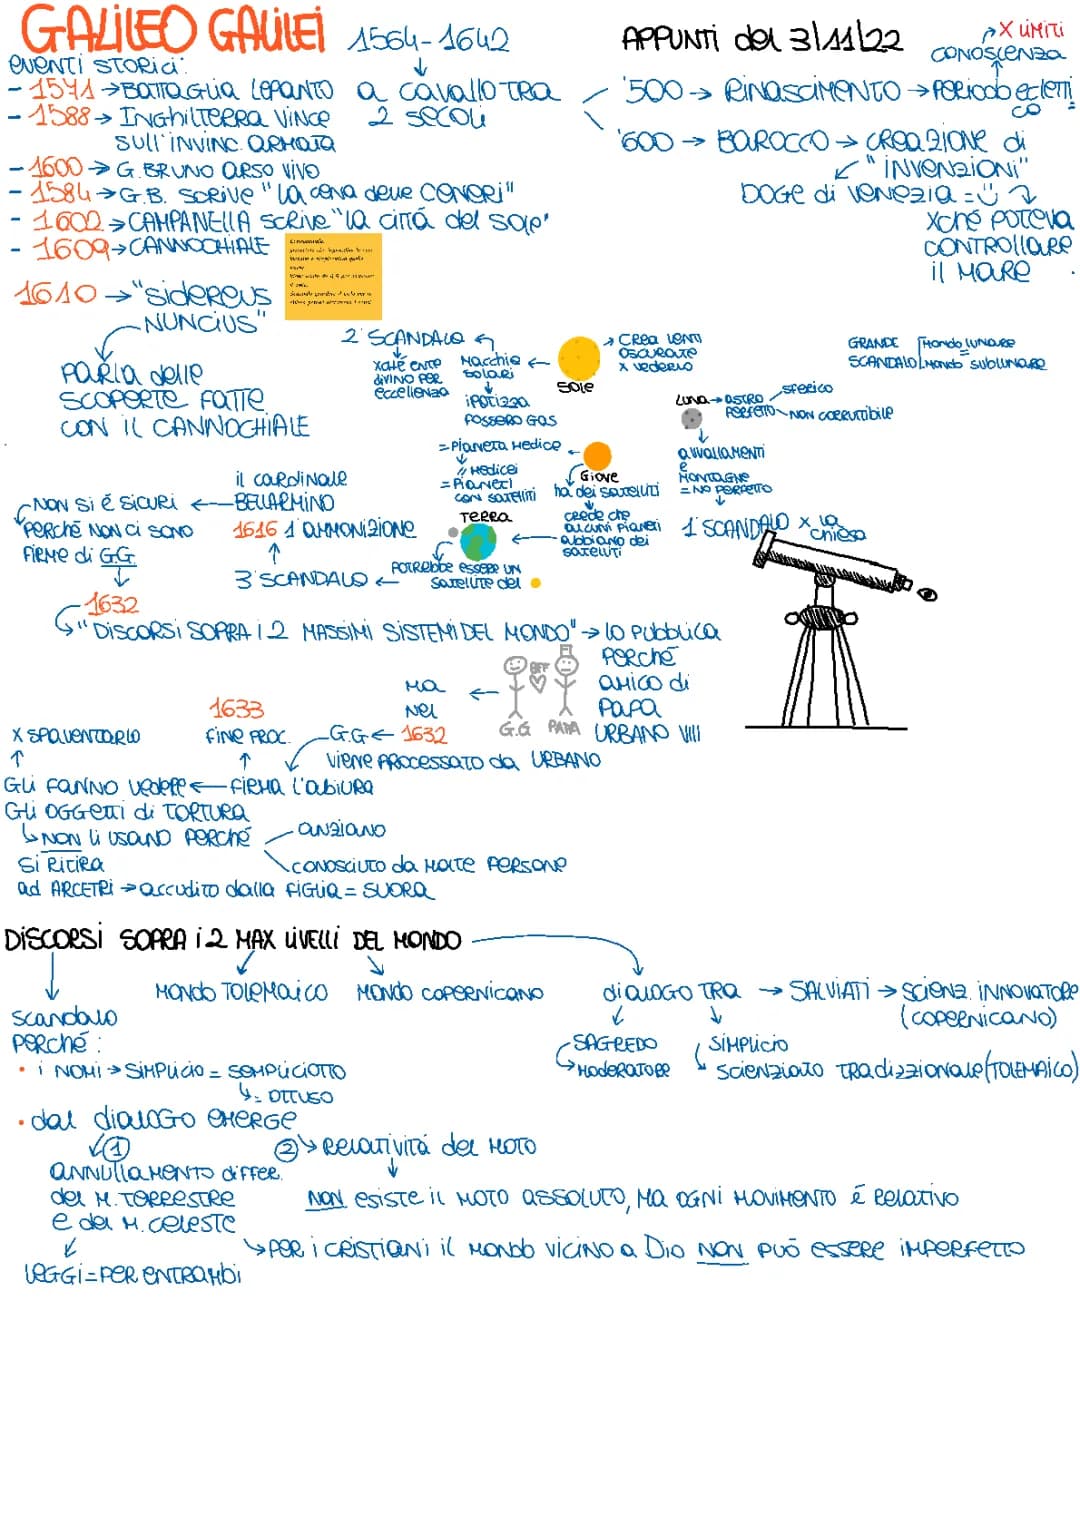 GALILEO GALILEI 1564-1642
APPUNTI del 3/11/22
X LIMITI
CONOSCENZA
EVENTI STORICI:
- 1571 → BATTAGLIA LEPANTO
- 1588 → INGHILTERRA VINCE
SULL'INVINC. ARMATA
- 1600 → G. BRUNO ARSO VIVO
- 1584 → G.B. SCRIVE "LA CENA DELLE CENERI"
- 1602 → CAMPANELLA SCRIVE "LA CITTÁ DEL SOLE"
- 1609 → CANNOCHIALE
1610 → "SIDEREUS
NUNCIUS"
PARLA delle
SCOPERTE FATTE
CON IL CANNOCHIALE
a CAVALLO TRA
2 SECOLI
'500 → RINASCIMENTO → PERIODO ECLETTI
CO
'600 → BAROCCO → CREAZIONE di
"INVENZIONI"
DOGE di VENEZIA =
XCHÉ POTEVA
CONTROLLARE
IL MARE
2° SCANDALO
XCHÉ ENTE
DIVINO PER
ECCELLENZA
MACCHIE
SOLARI
IPOTIZZA
FOSSERO GAS
SOLE
CREA LENTI
OSCURATE
X VEDERLO
GRANDE
SCANDALO
MONDO LUNARE
MONDO SUBLUNARE
LUNA → ASTRO
PERFETTO
SFERICO
NON CORRUTTIBILE
AVVALLAMENTI
E
MONTAGNE
= NO PERFETTO
1° SCANDALO X la
chiesa
= PIANETA MEDICE
// MEDICEI
= PIANETI
CON SATELLITI
GIOVE
ha dei SATELLITI
CREDE CHE
ALCUNI PIANETI
ABBIANO DEI
SATELLITI
TERRA
POTREBBE ESSERE UN
SATELLITE del
3° SCANDALO
1616 1° AMMONIZIONE
il CARDINALE
BELLARMINO
NON SI É SICURI
PERCHÉ NON CI SONO
FIRME di G.G.
1632
"DISCORSI SOPRA I 2 MASSIMI SISTEMI DEL MONDO" → LO PUBBLICA
PERCHÉ
AMICO DI
PAPA
URBANO VIII
BFF
G.G PAPA
MA
NEL
1632
G.G
VIENE PROCESSATO da URBANO
1633
FINE PROC.
FIRMA L'ABIURA
X SPAVENTARLO
GLI FANNO VEDERE
GLI OGGETTI di TORTURA
NON LI USANO PERCHÉ
ANZIANO
CONOSCIUTO da MOLTE PERSONE
SI RITIRA
ad ARCETRI → accudito dalla FIGLIA = SUORA
DISCORSI SOPRA I 2 MAX LIVELLI DEL MONDO
MONDO TOLEMAICO
MONDO COPERNICANO
dialogo TRA → SALVIATI → SCIENZ. INNOVATORE
(COPERNICANO)
SAGREDO
MODERATORE
SIMPLICIO
SCIENZIATO TRADIZZIONALE (TOLEMAICO)
SCANDALO
PERCHÉ:
• I NOMI → SIMPLICIO = SEMPLICIOTTO
= OTTUSO
• dal dialogo EMERGE
①
ANNULLAMENTO DIFFER.
del M. TERRESTRE
e del M. CELESTE
LEGGI = PER ENTRAMBI
② RELATIVITÁ del MOTO
NON ESISTE IL MOTO ASSOLUTO, MA OGNI MOVIMENTO É RELATIVO
PER I CRISTIANI IL MONDO VICINO A DIO NON PUÓ ESSERE IMPERFETTO